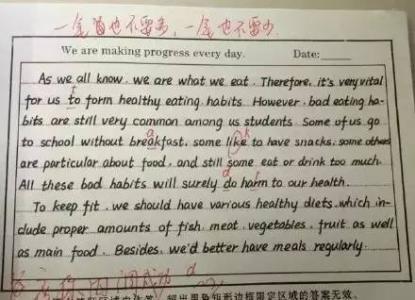 一笔也不要多，一笔也不要少
We are making progress every day. Date:
As we all know, we are what we eat. Therefore, it's very vital
for us to form healthy eating habits. However, bad eating ha-
bits are still very common among us students. Some of us go
to school without breakfast, some like to have snacks, some others
are particular about food, and still some eat or drink too much.
All these bad habits will surely do harm to our health.
To keep fit, we should have various healthy diets, which in-
clude proper amounts of fish, meat, vegetables, fruit as well
as main food. Besides, we'd better have meals regularly.
超出黑色矩形边框限定区域的答案无效